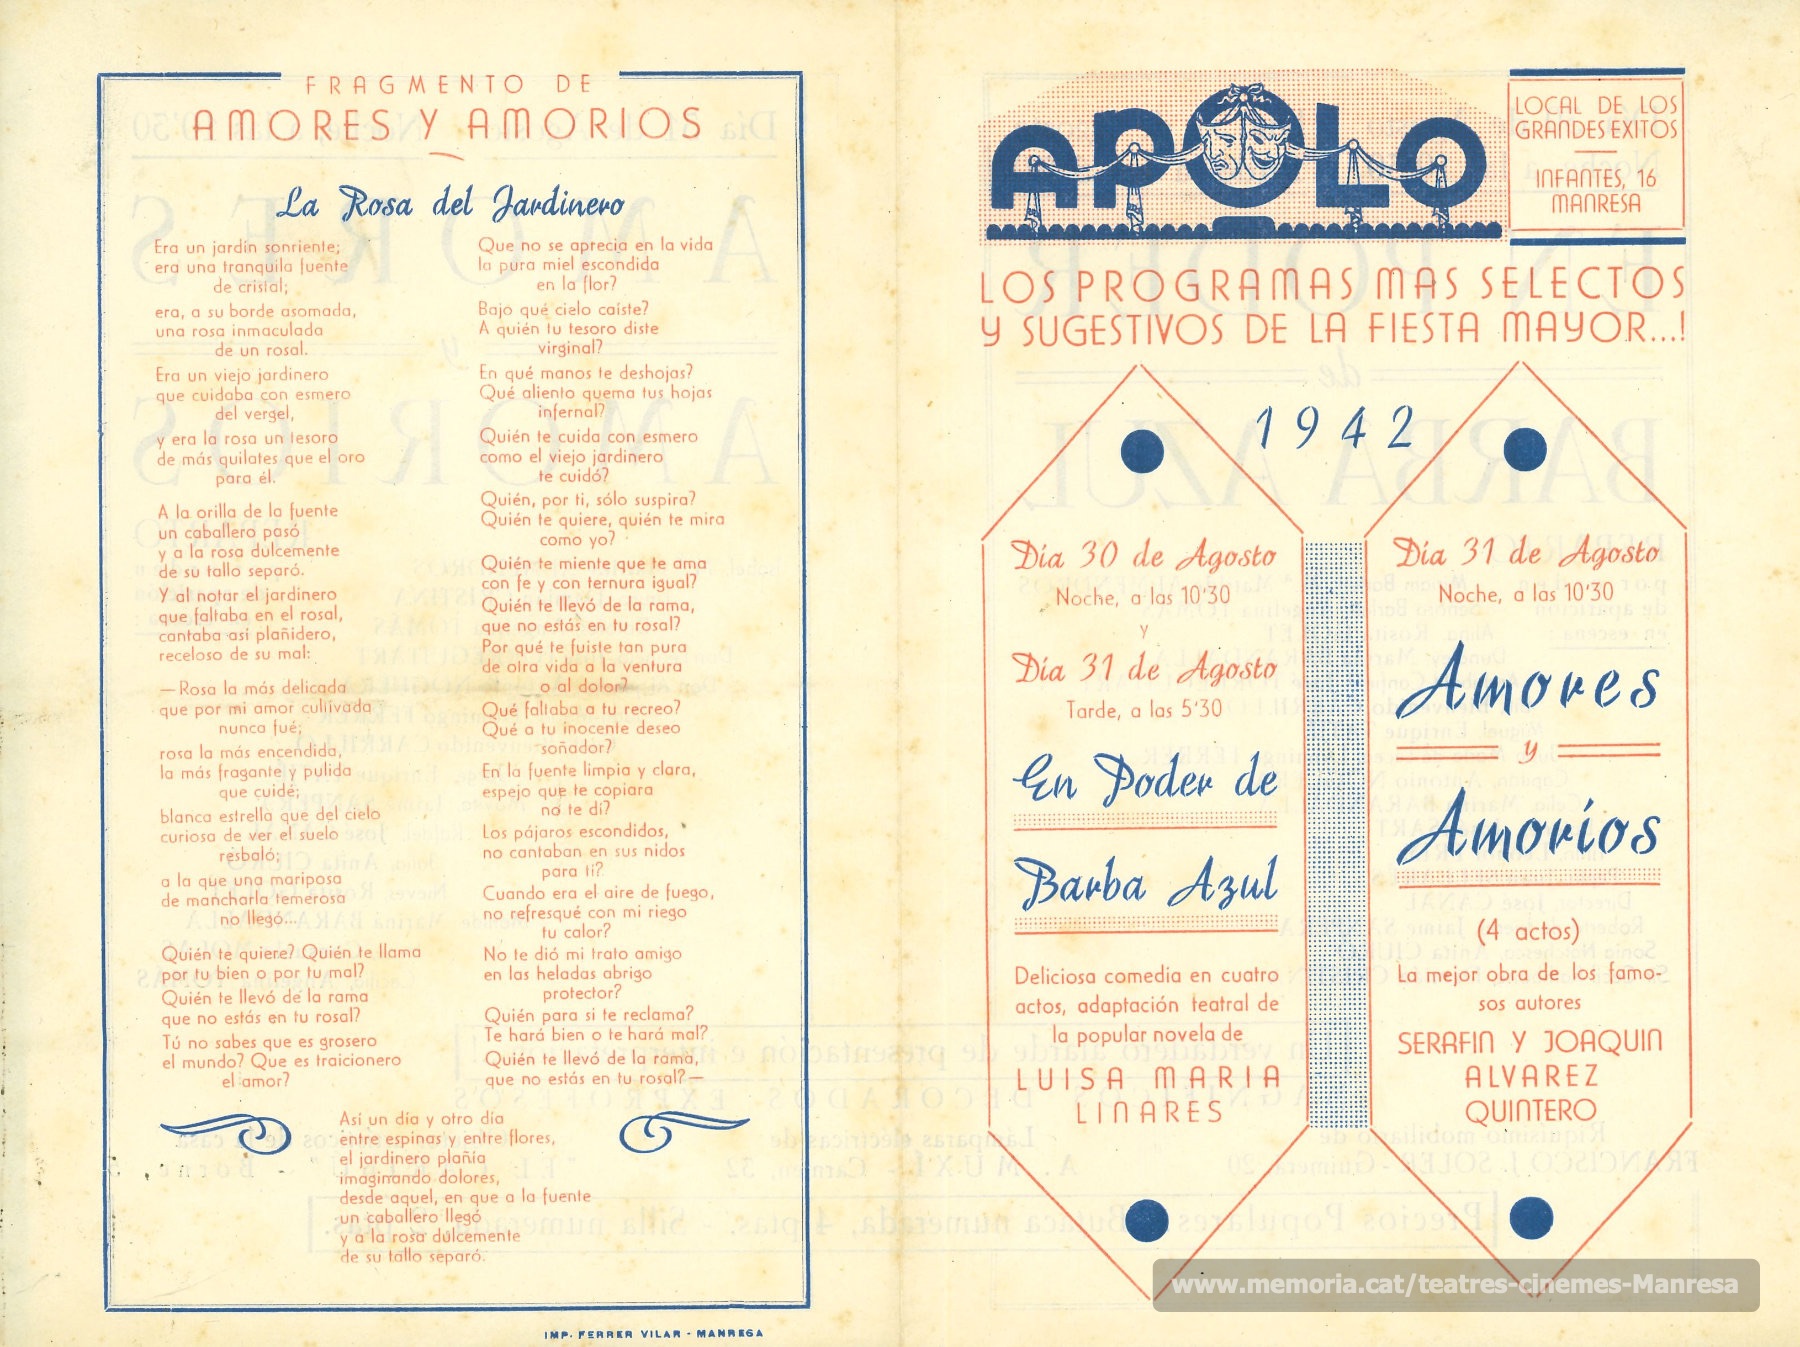 FRAGMENTO DE
AMORES Y AMORIOS
La Rosa del Jardinero
Era un jardín sonriente;
era una tranquila fuente
de cristal;
era, a su borde asomada,
una rosa inmaculada
de un rosal.
Era un viejo jardinero
que cuidaba con esmero
del vergel,
y era la rosa un tesoro
de más quilates que el oro
para él.
A la orilla de la fuente
un caballero pasó
y a la rosa dulcemente
de su tallo separó.
Y al notar el jardinero
que faltaba en el rosal,
cantaba así plañidero,
receloso de su mal:
—Rosa la más delicada
que por mi amor cultivada
nunca fué;
rosa la más encendida,
la más fragante y pulida
que cuidé;
blanca estrella que del cielo
curiosa de ver el suelo
resbaló;
a la que una mariposa
de mancharla temerosa
no llegó...
Quién te quiere? Quién te llama
por tu bien o por tu mal?
Quién te llevó de la rama
que no estás en tu rosal?
Tú no sabes que es grosero
el mundo? Que es traicionero
el amor?
Que no se aprecia en la vida
la pura miel escondida
en la flor?
Bajo qué cielo caíste?
A quién tu tesoro diste
virginal?
En qué manos te deshojas?
Qué aliento quema tus hojas
infernal?
Quién te cuida con esmero
como el viejo jardinero
te cuidó?
Quién, por ti, sólo suspira?
Quién te quiere, quién te mira
como yo?
Quién te miente que te ama
con fe y con ternura igual?
Quién te llevó de la rama,
que no estás en tu rosal?
Por qué te fuiste tan pura
de otra vida a la ventura
o al dolor?
Qué faltaba a tu recreo?
Qué a tu inocente deseo
soñador?
En la fuente limpia y clara,
espejo que te copiara
no te dí?
Los pájaros escondidos,
no cantaban en sus nidos
para ti?
Cuando era el aire de fuego,
no refresqué con mi riego
tu calor?
No te dió mi trato amigo
en las heladas abrigo
protector?
Quién para si te reclama?
Te hará bien o te hará mal?
Quién te llevó de la rama,
que no estás en tu rosal?—
Así un día y otro día
entre espinas y entre flores,
el jardinero plañía
imaginando dolores,
desde aquel, en que a la fuente
un caballero llegó
y a la rosa dúlcemente
de su tallo separó.
IMP. FERRER VILAR - MANRESA
APOLO
LOCAL DE LOS
GRANDES EXITOS
INFANTES, 16
MANRESA
LOS PROGRAMAS MAS SELECTOS
Y SUGESTIVOS DE LA FIESTA MAYOR...!
1942
Día 30 de Agosto
Noche, a las 10'30
y
Día 31 de Agosto
Tarde, a las 5'30
En Poder de
Barba Azul
Deliciosa comedia en cuatro
actos, adaptación teatral de
la popular novela de
LUISA MARIA
LINARES
Día 31 de Agosto
Noche, a las 10'30
Amores
y
Amoríos
(4 actos)
La mejor obra de los famo-
sos autores
SERAFIN Y JOAQUIN
ALVAREZ
QUINTERO
www.memoria.cat/teatres-cinemes-Manresa